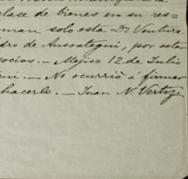 clase de bienes en su res-
man solo esta Dn Ventura
dro de Ansoategui, por estar
ocios. — Mejico 12 de Julio
. — No ocurrió á firmar
hacerlo. — Juan N. Vertiz